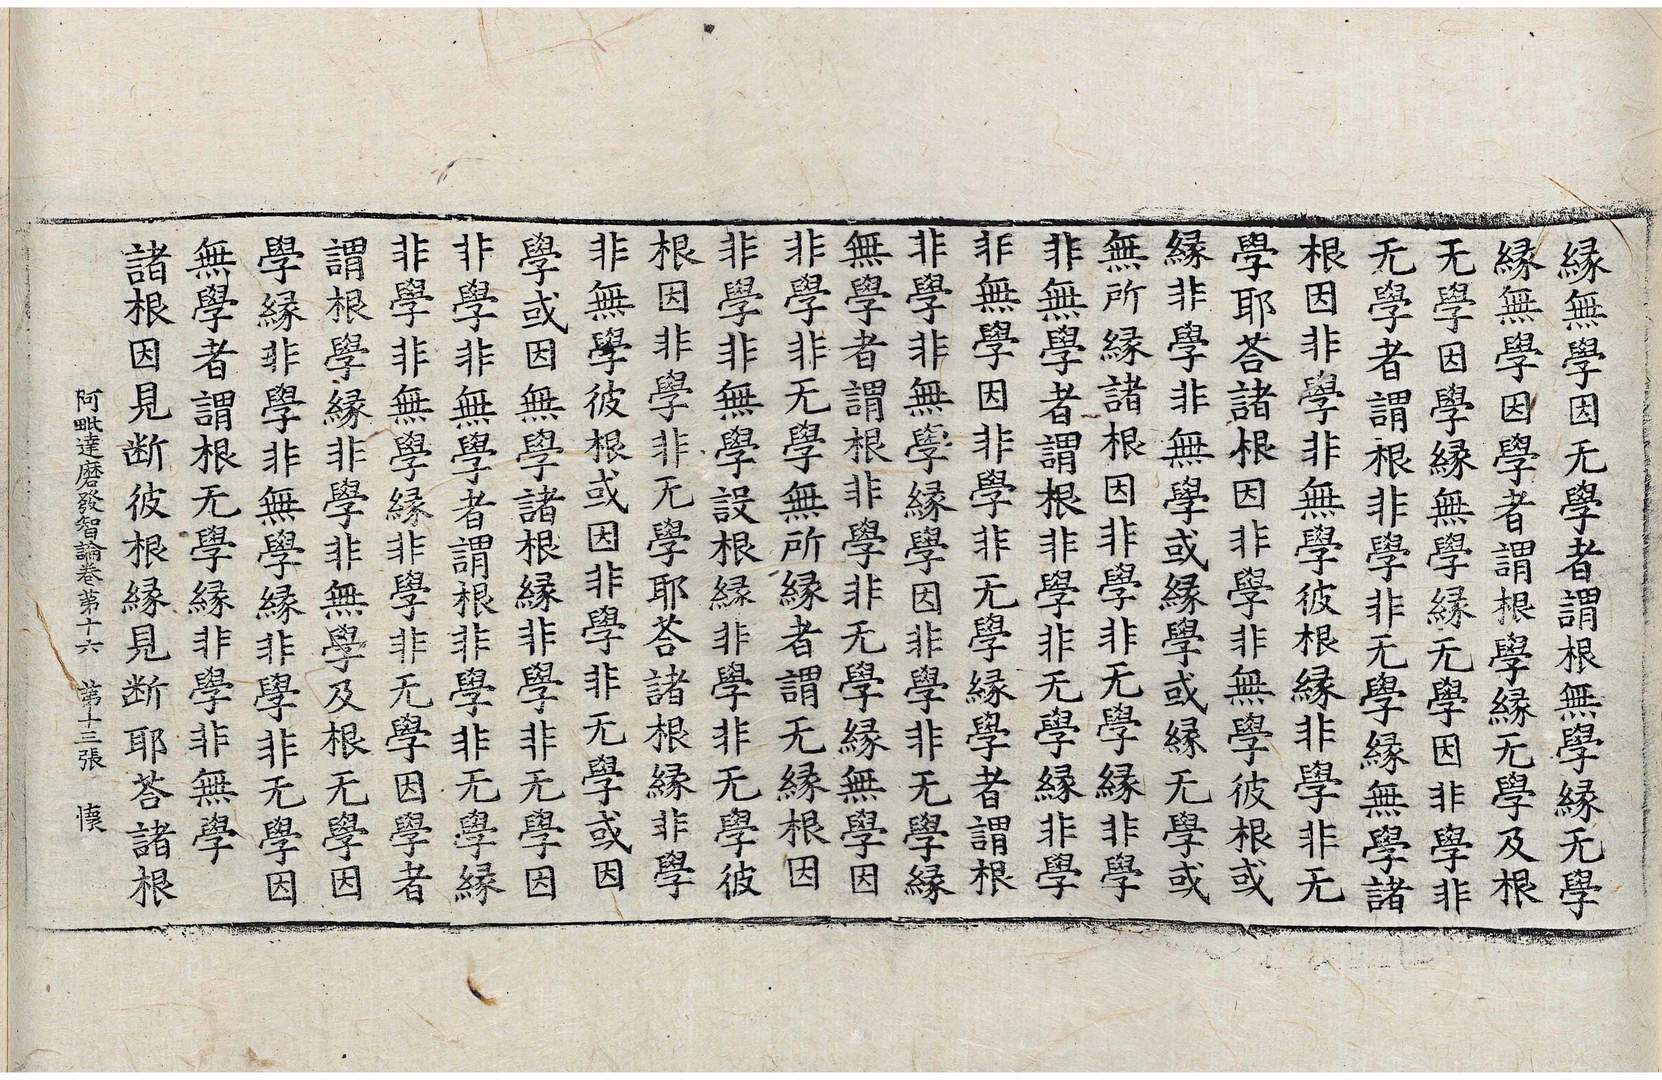 縁無學因无學者謂根無學縁无學
縁無學因學者謂根學縁无學及根
无學因學縁無學縁无學因非學非
无學者謂根非學非无學縁無學諸
根因非學非無學彼根縁非學非无
學耶荅諸根因非學非無學彼根或
縁非學非無學或縁學或縁无學或
無所縁諸根因非學非无學縁非學
非無學者謂根非學非无學縁非學
非無學因非學非无學縁學者謂根
非學非無學縁學因非學非无學縁
無學者謂根非學非无學縁無學因
非學非无學無所縁者謂无縁根因
非學非無學設根縁非學非无學彼
根因非學非无學耶荅諸根縁非學
非無學彼根或因非學非无學或因
學或因無學諸根縁非學非无學因
非學非無學者謂根非學非无學縁
非學非無學縁非學非无學因學者
謂根學縁非學非無學及根无學因
學縁非學非無學縁非學非无學因
無學者謂根无學縁非學非無學
諸根因見断彼根縁見断耶荅諸根
阿毗達磨發智論卷第十六 第十三張 慔